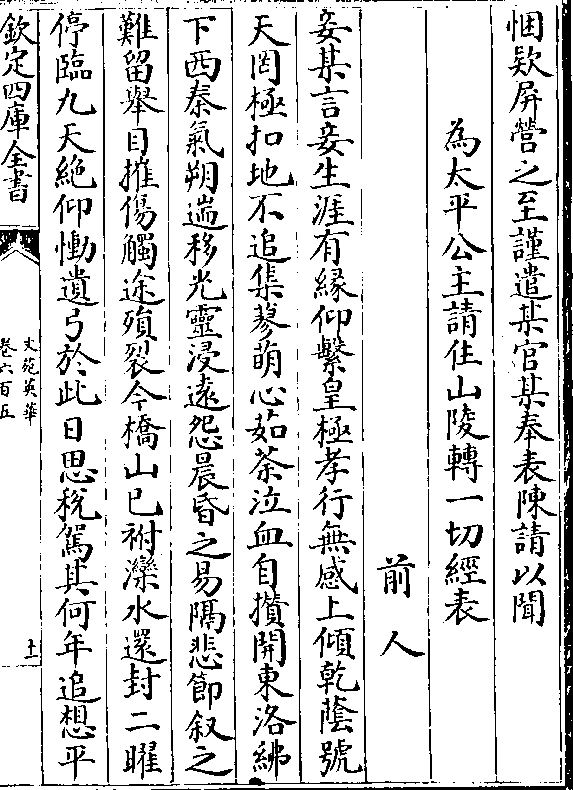 悃欵屏營之至謹遣某官某奉表陳請以聞
為太平公主請住山陵轉一切經表
前人
妾某言妾生涯有緣仰繫皇極孝行無感上傾乾蔭號
天罔極扣地不追集蓼萌心茹荼泣血自攢開東洛紼
下西秦氣朔遄移光靈浸遠怨晨昏之易隔悲節叙之
難留舉目摧傷觸途殞裂今橋山已祔灤水還封二曜
停臨九天絶仰慟遺弓於此日思税駕其何年追想平
欽定四庫全書
文苑英華
卷六百五
十一